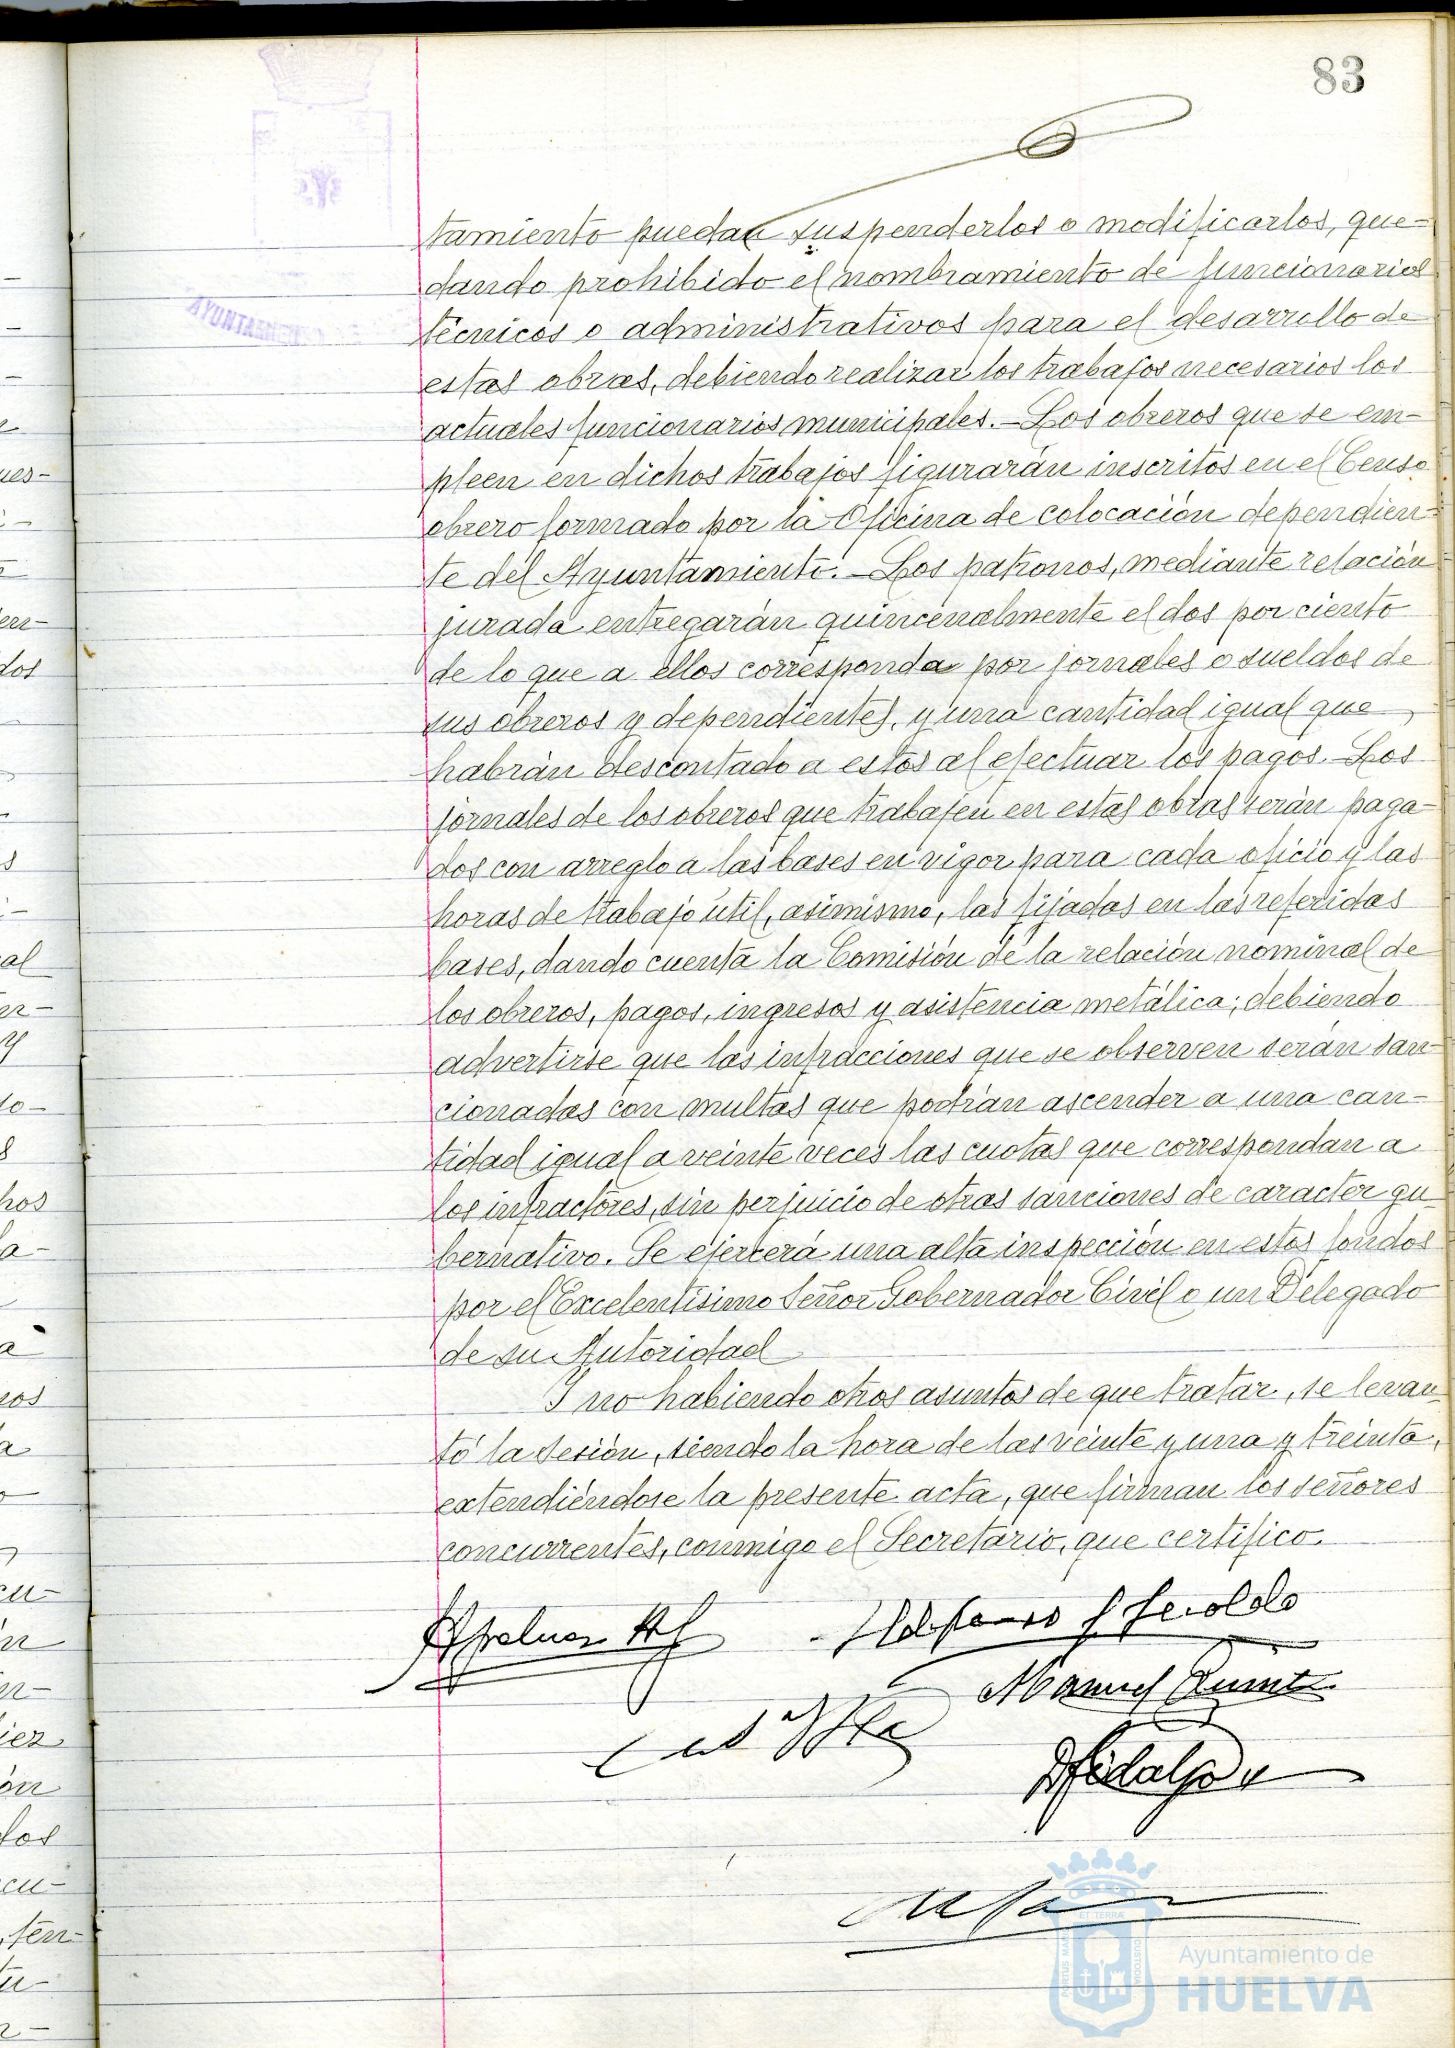 83
tamiento puedan suspenderlos o modificarlos, que-
dando prohibido el nombramiento de funcionarios
técnicos o administrativos para el desarrollo de
estas obras, debiendo realizar los trabajos necesarios los
actuales funcionarios municipales.—Los obreros que se em-
pleen en dichos trabajos figurarán inscritos en el Censo
obrero formado por la Oficina de colocación dependien-
te del Ayuntamiento.—Los patronos, mediante relación
jurada entregarán quincenalmente el dos por ciento
de lo que a ellos corresponda por jornales o sueldos de
sus obreros y dependientes, y una cantidad igual que
habrán descontado a estos al efectuar los pagos.—Los
jornales de los obreros que trabajen en estas obras serán paga-
dos con arreglo a las bases en vigor para cada oficio y las
horas de trabajo útil, asimismo, las fijadas en las referidas
bases, dando cuenta la Comisión de la relación nominal de
los obreros, pagos, ingresos y asistencia metálica; debiendo
advertirse que las infracciones que se observen serán san-
cionadas con multas que podrán ascender a una can-
tidad igual a veinte veces las cuotas que correspondan a
los infractores, sin perjuicio de otras sanciones de caracter gu-
bernativo. Se ejercerá una alta inspección en estos fondos
por el Excelentísimo Señor Gobernador Civil o un Delegado
de su Autoridad
Y no habiendo otros asuntos de que tratar, se levan-
tó la sesión, siendo la hora de las veinte y una y treinta,
extendiéndose la presente acta, que firman los señores
concurrentes, conmigo el Secretario, que certifico.
Manuel
Hidalgo
AYUNTAMIENTO
Ayuntamiento de
HUELVA